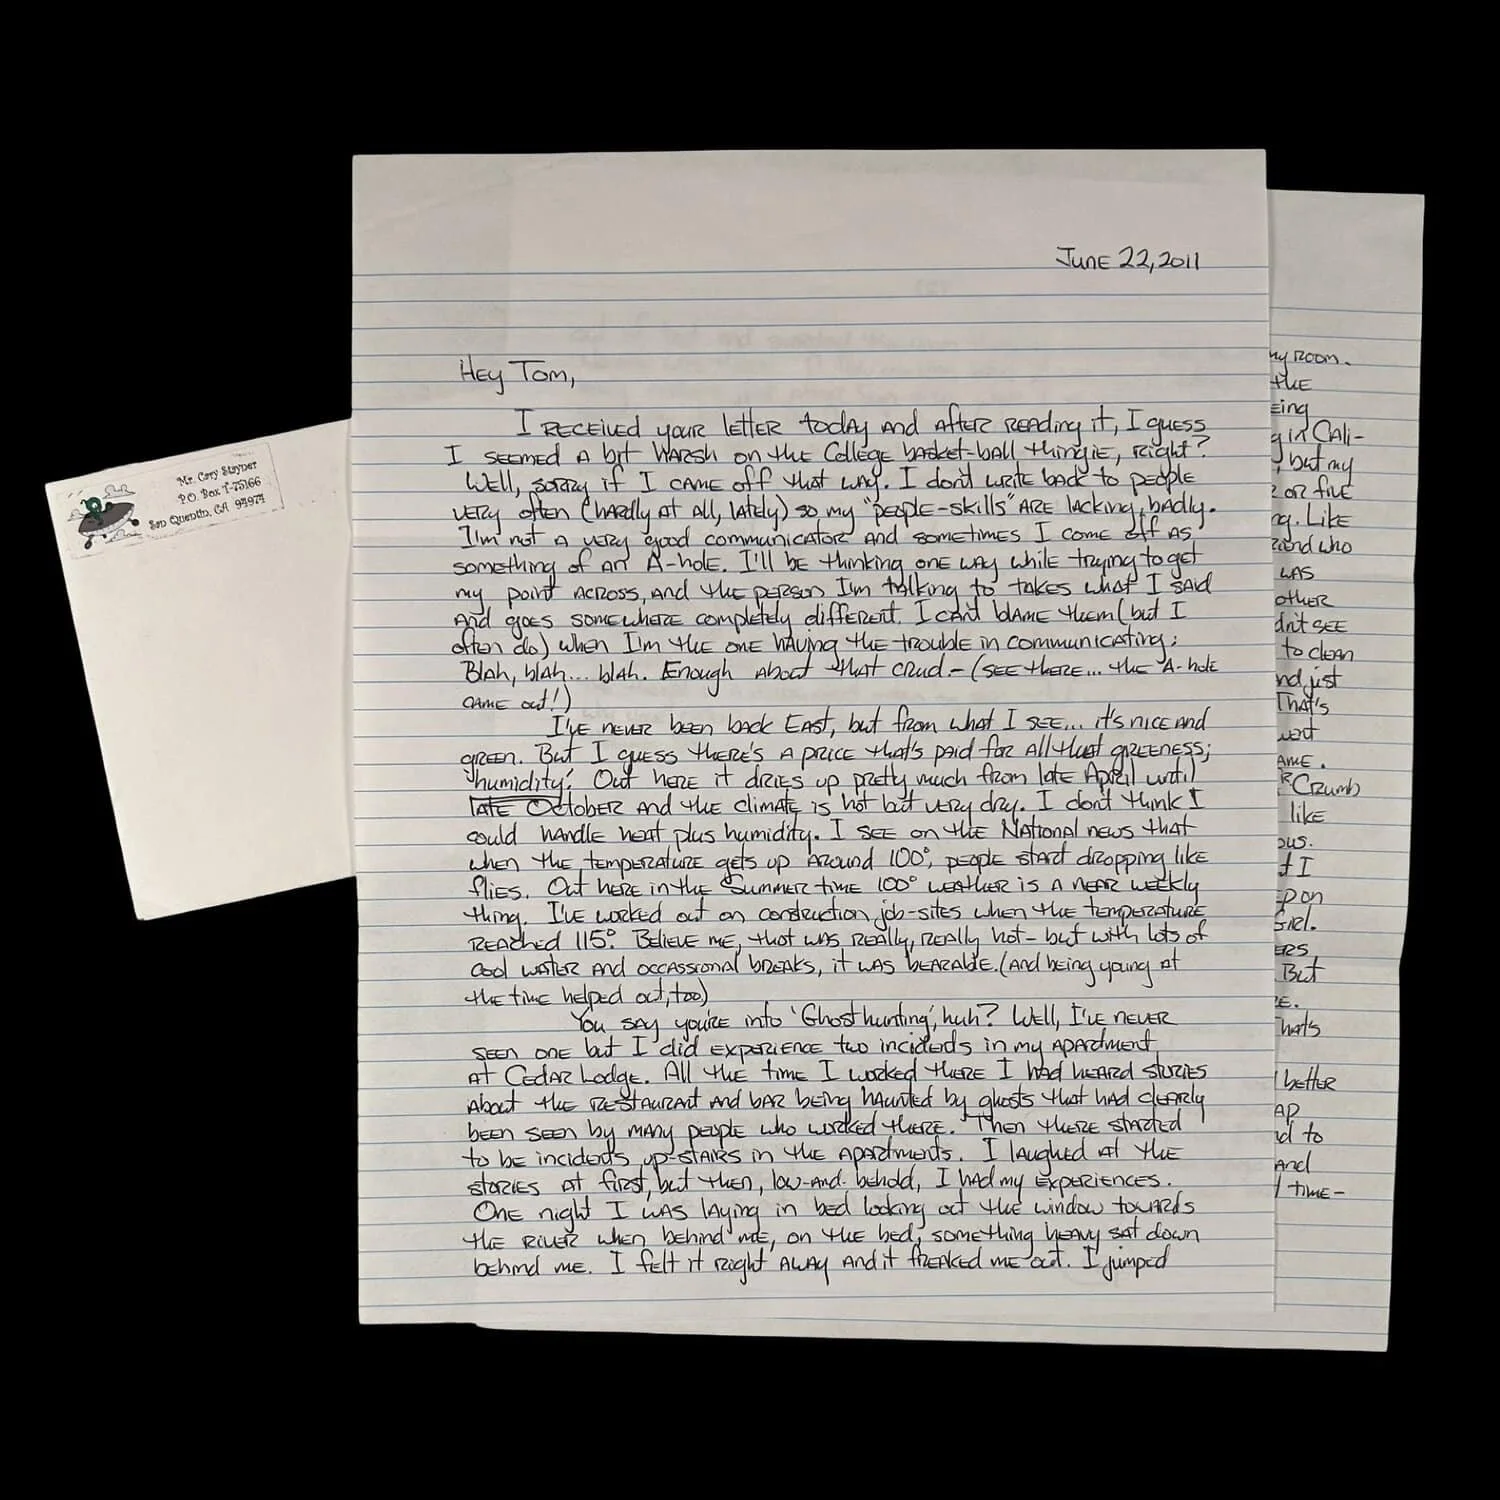 Mr. Cary Stayner
P.O. Box T-75166
San Quentin, CA 94974
June 22, 2011
Hey Tom,
I received your letter today and after reading it, I guess
I seemed a bit harsh on the College basket-ball thingie, right?
Well, sorry if I came off that way. I don't write back to people
very often (hardly at all, lately) so my "people-skills" are lacking, badly.
I'm not a very good communicator and sometimes I come off as
something of an A-hole. I'll be thinking one way while trying to get
my point across, and the person I'm talking to takes what I said
and goes somewhere completely different. I can't blame them (but I
often do) when I'm the one having the trouble in communicating;
Blah, blah... blah. Enough about that crud - (see there... the 'A-hole
came out!)
I've never been back East, but from what I see... it's nice and
green. But I guess there's a price that's paid for all that greeness;
'humidity'. Out here it dries up pretty much from late April until
late October and the climate is hot but very dry. I don't think I
could handle heat plus humidity. I see on the National news that
when the temperature gets up around 100°, people start dropping like
flies. Out here in the Summer time 100° weather is a near weekly
thing. I've worked out on construction job-sites when the temperature
reached 115°. Believe me, that was really, really hot - but with lots of
cool water and occassional breaks, it was bearable. (And being young at
the time helped out, too)
You say you're into 'Ghost hunting', huh? Well, I've never
seen one but I did experience two incidents in my apartment
at Cedar Lodge. All the time I worked there I had heard stories
about the restaurant and bar being haunted by ghosts that had clearly
been seen by many people who worked there. Then there started
to be incidents up-stairs in the apartments. I laughed at the
stories at first, but then, low-and-behold, I had my experiences.
One night I was laying in bed looking out the window towards
the river when behind me, on the bed, something heavy sat down
behind me. I felt it right away and it freaked me out. I jumped
my room.
the
eing
g in Cali-
, but my
or five
ng. Like
end who
was
other
dn't see
to clean
nd just
That's
wert
ame.
R Crumb)
like
ous.
t I
ep on
Girl.
ers
But
e.
That's
better
ap
d to
and
time-